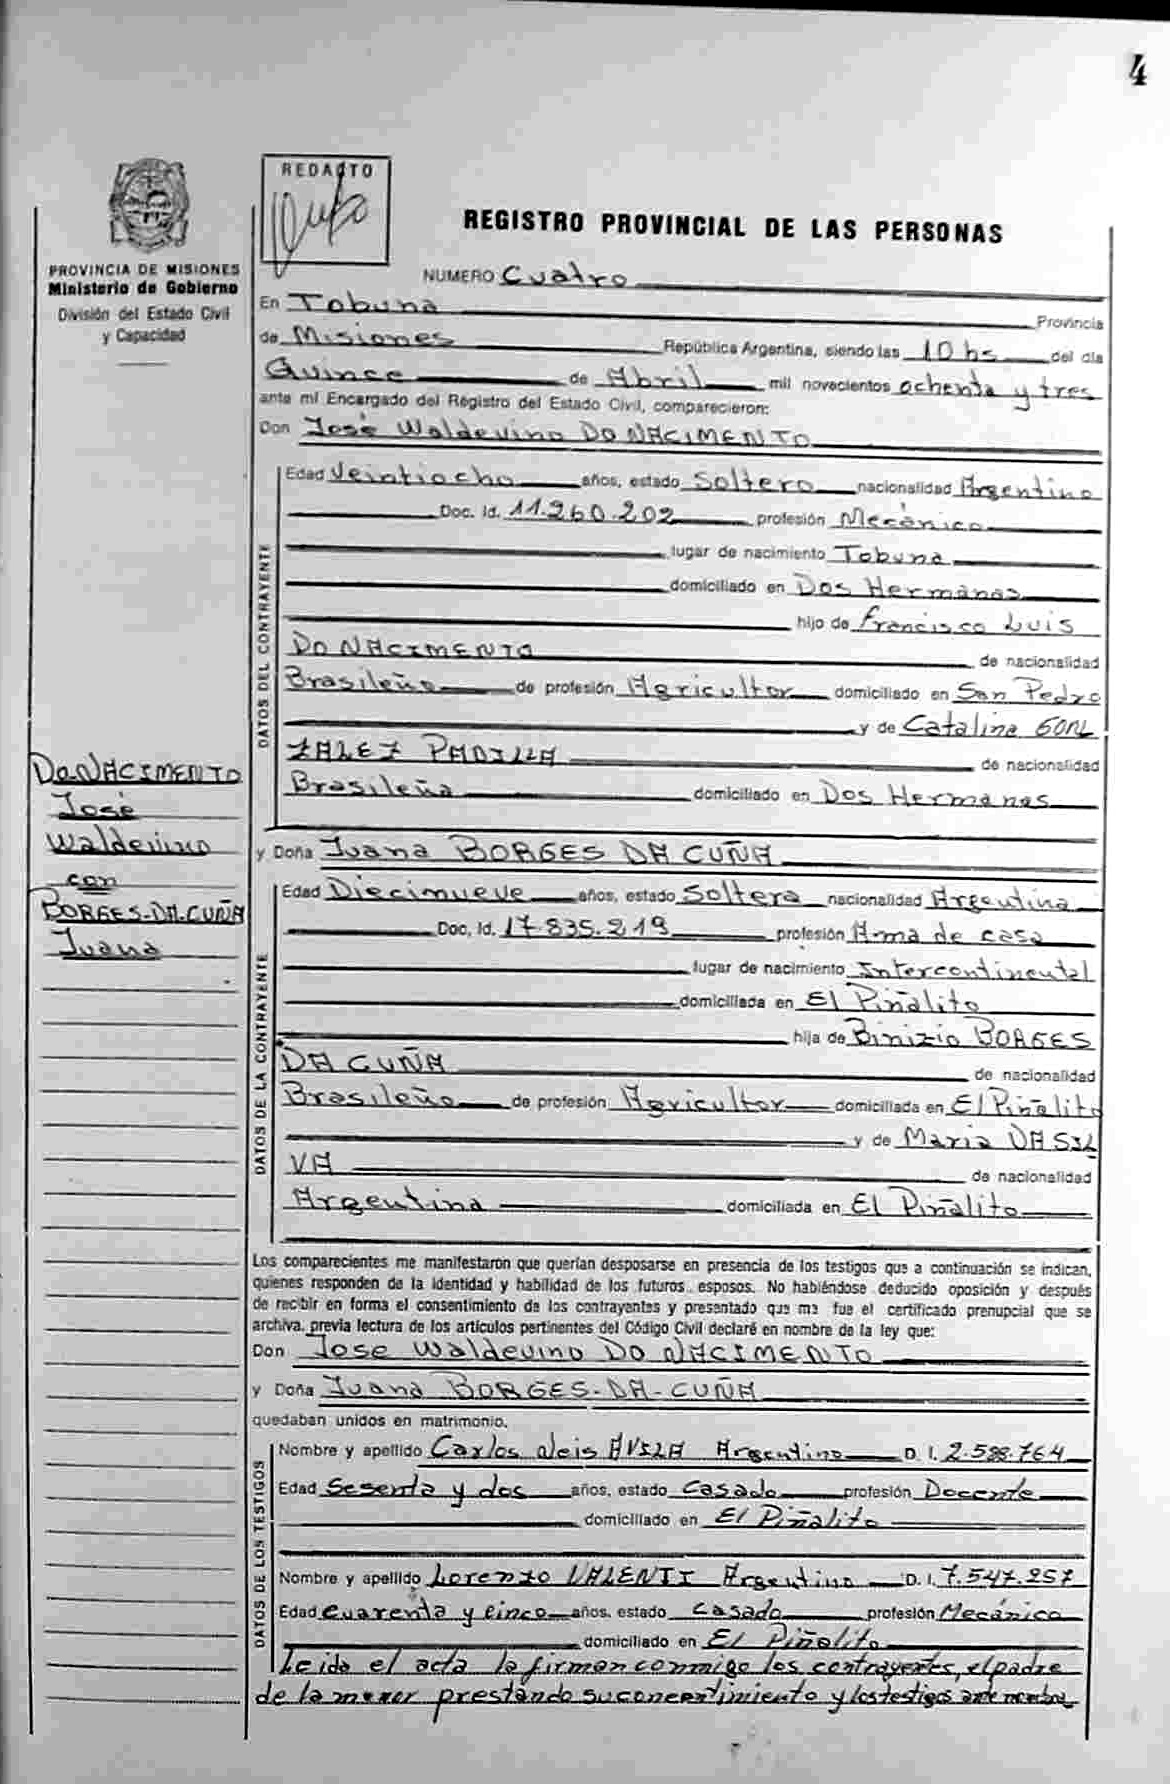 4
REDACTO
REGISTRO PROVINCIAL DE LAS PERSONAS
PROVINCIA DE MISIONES
Ministerio de Gobierno
División del Estado Civil
y Capacidad
NUMERO Cuatro
En Tobuna Provincia
de Misiones República Argentina, siendo las 10 hs del día
Quince de Abril mil novecientos ochenta y tres
ante mí Encargado del Registro del Estado Civil, comparecieron:
Don José Waldevino DO NACIMENTO
DATOS DEL CONTRAYENTE
Edad Veintiocho años, estado Soltero nacionalidad Argentino
Doc. Id. 11.260.202 profesión Mecánico
lugar de nacimiento Tobuna
domiciliado en Dos Hermanas
hijo de Francisco Luis
DO NACIMENTO de nacionalidad
Brasileño de profesión Agricultor domiciliado en San Pedro
y de Catalina GON
ZALEZ PADILLA de nacionalidad
Brasileña domiciliado en Dos Hermanas
DO NACIMENTO
José
Waldevino
con
BORGES-DA-CUÑA
Juana
y Doña Juana BORGES DA CUÑA
DATOS DE LA CONTRAYENTE
Edad Diecinueve años, estado Soltera nacionalidad Argentina
Doc. Id. 17.835.219 profesión Ama de casa
lugar de nacimiento Intercontinental
domiciliada en El Piñalito
hija de Binizio BORGES
DA CUÑA de nacionalidad
Brasileño de profesión Agricultor domiciliada en El Piñalito
y de Maria DA SIL
VA de nacionalidad
Argentina domiciliada en El Piñalito
Los comparecientes me manifestaron que querían desposarse en presencia de los testigos que a continuación se indican,
quienes responden de la identidad y habilidad de los futuros esposos. No habiéndose deducido oposición y después
de recibir en forma el consentimiento de los contrayentes y presentado que me fue el certificado prenupcial que se
archiva, previa lectura de los artículos pertinentes del Código Civil declaré en nombre de la ley que:
Don Jose Waldevino DO NACIMENTO
y Doña Juana BORGES-DA-CUÑA
quedaban unidos en matrimonio.
DATOS DE LOS TESTIGOS
Nombre y apellido Carlos AVILA Argentino D. I. 2.588.764
Edad Sesenta y dos años, estado Casado profesión Docente
domiciliado en El Piñalito
Nombre y apellido Lorenzo VALENTI Argentino D. I. 7.547.257
Edad Cuarenta y cinco años, estado Casado profesión Mecánico
domiciliado en El Piñalito
Leida el acta la firman conmigo los contrayentes, el padre
de la menor prestando su concentimiento y los testigos ante